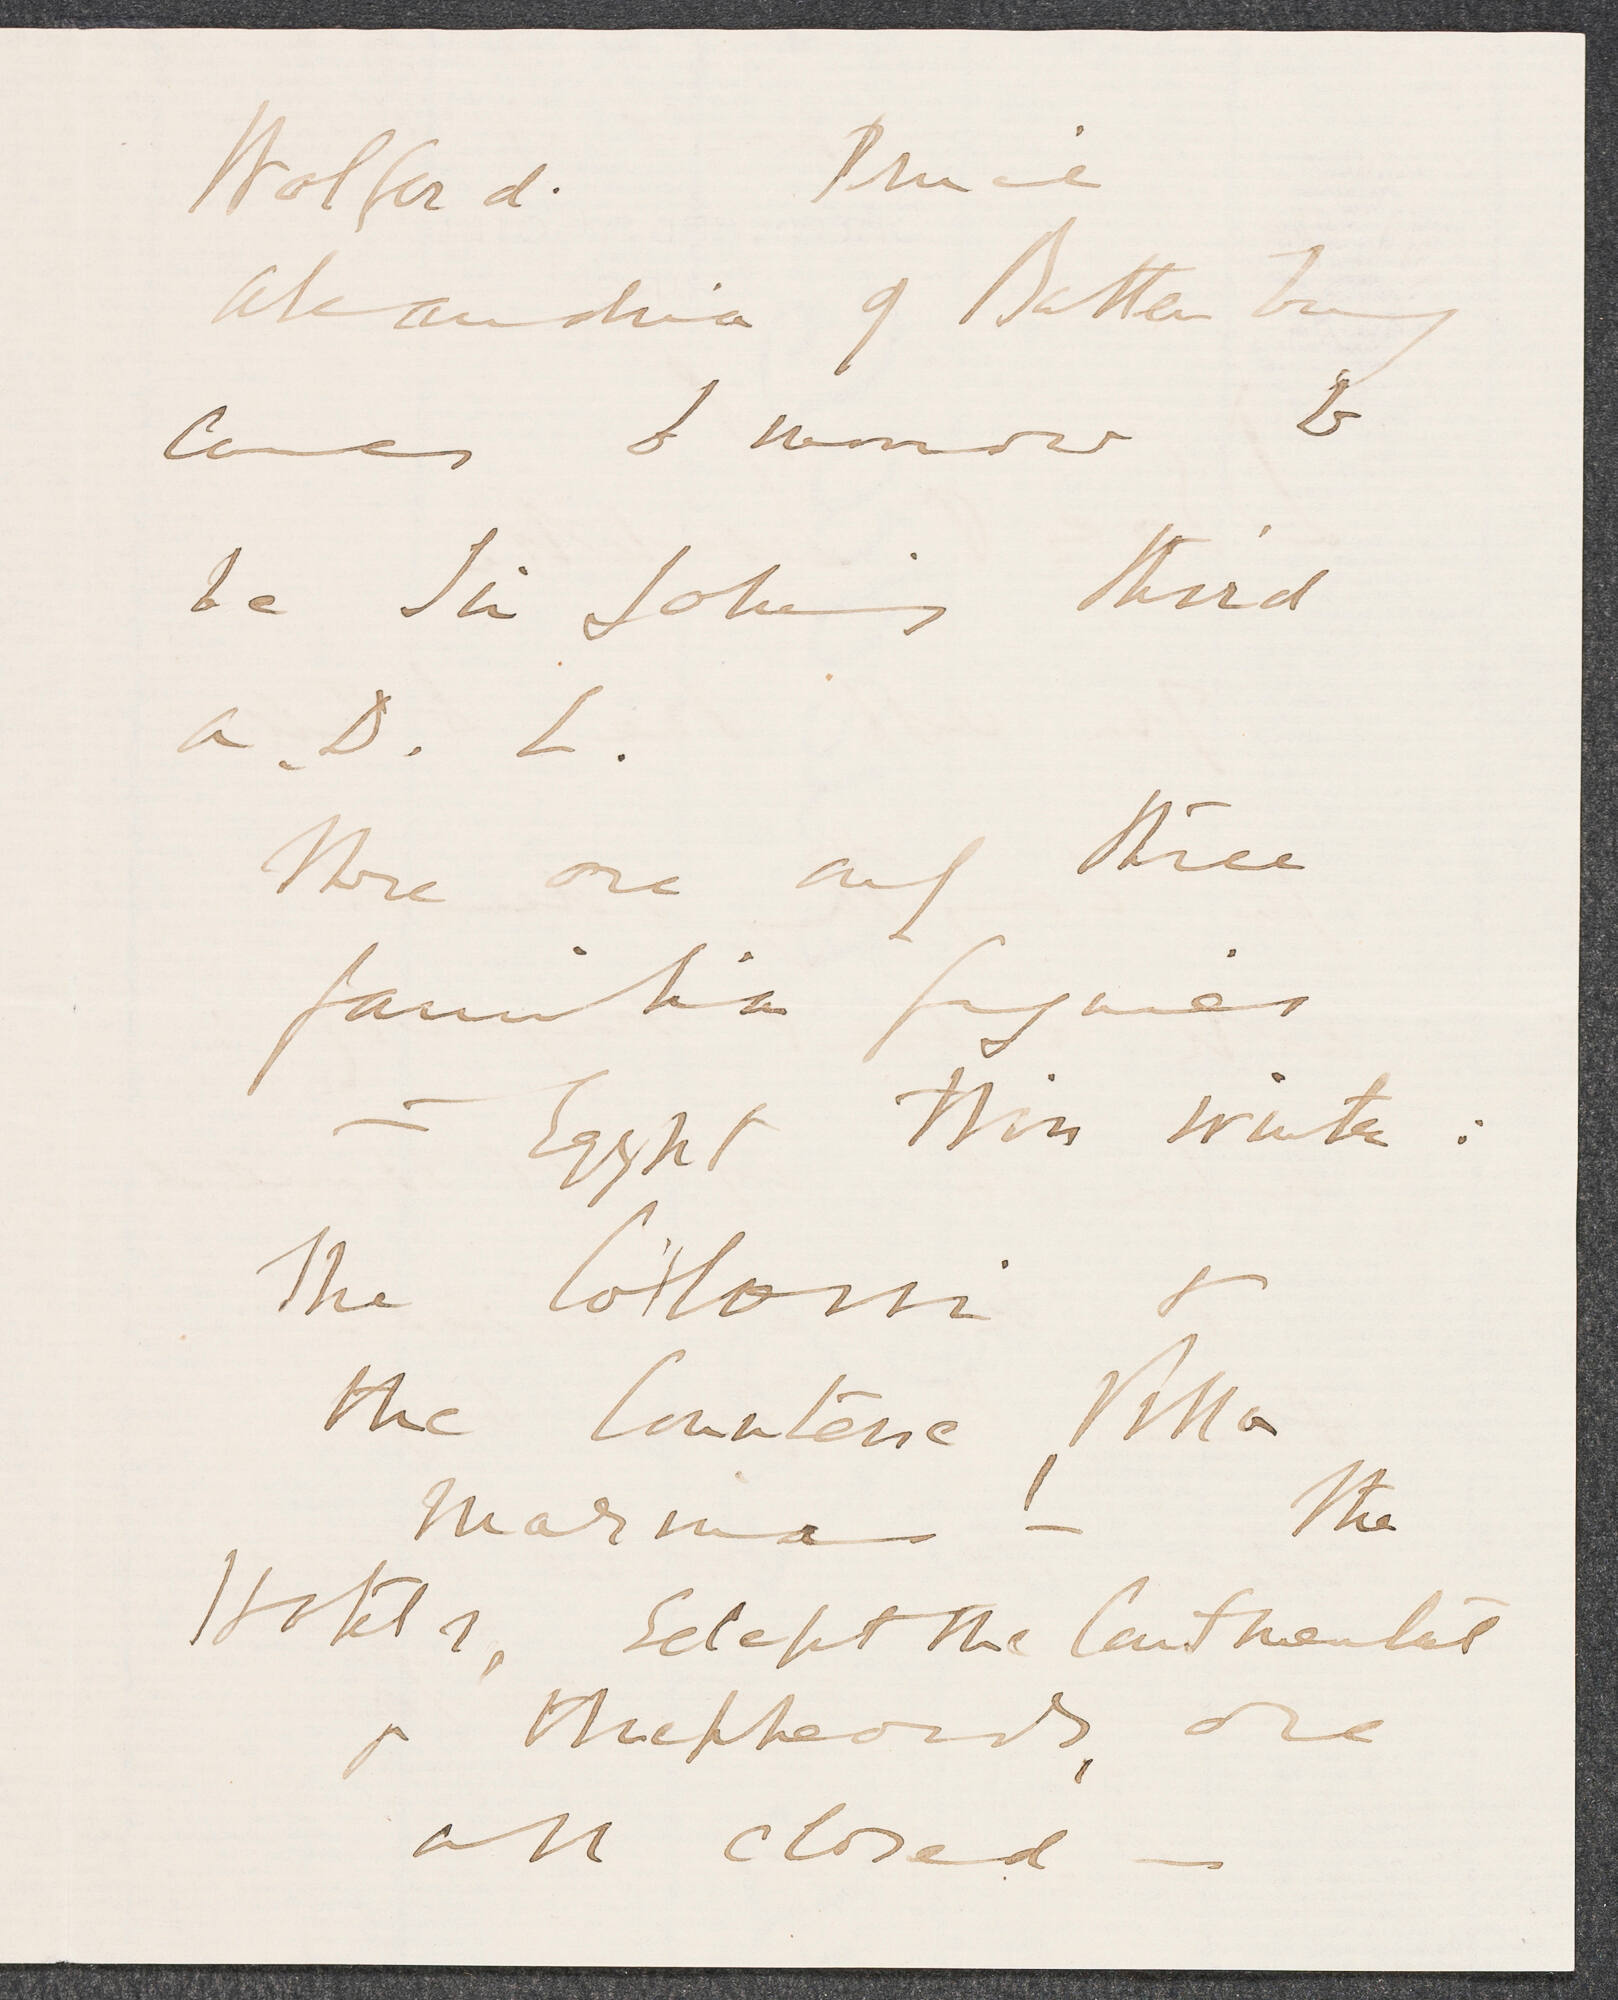 Wolford. Prince
Alexander of Battenberg
comes to morrow to
be Sir John's third
A.D.C.
There are only three
familiar figures
in Egypt this winter:
The Colossi &
the Countess Villa
Marina! — The
Hotels, except the Continental
& Shepheards, are
all closed —